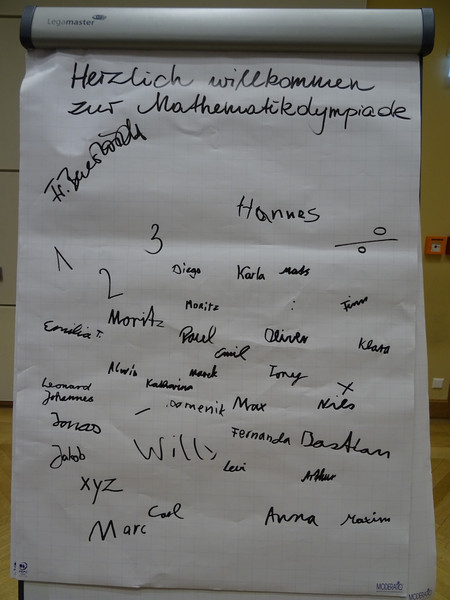 Legamaster
Herzlich willkommen
zur Mathematikolympiade
Hannes
÷
3
1
2
Diego Karla Mats
Moritz : Finn
Moritz
Emilia T. Paul Oliver
Emil Klara
Alwin Marek Tony
Leonard Katharina ×
Johannes
- Domenik Max Nils
Jonas
Fernanda Bastian
Jakob Willi
Levi
Arthur
xyz
Carl
Marc Anna Maxim